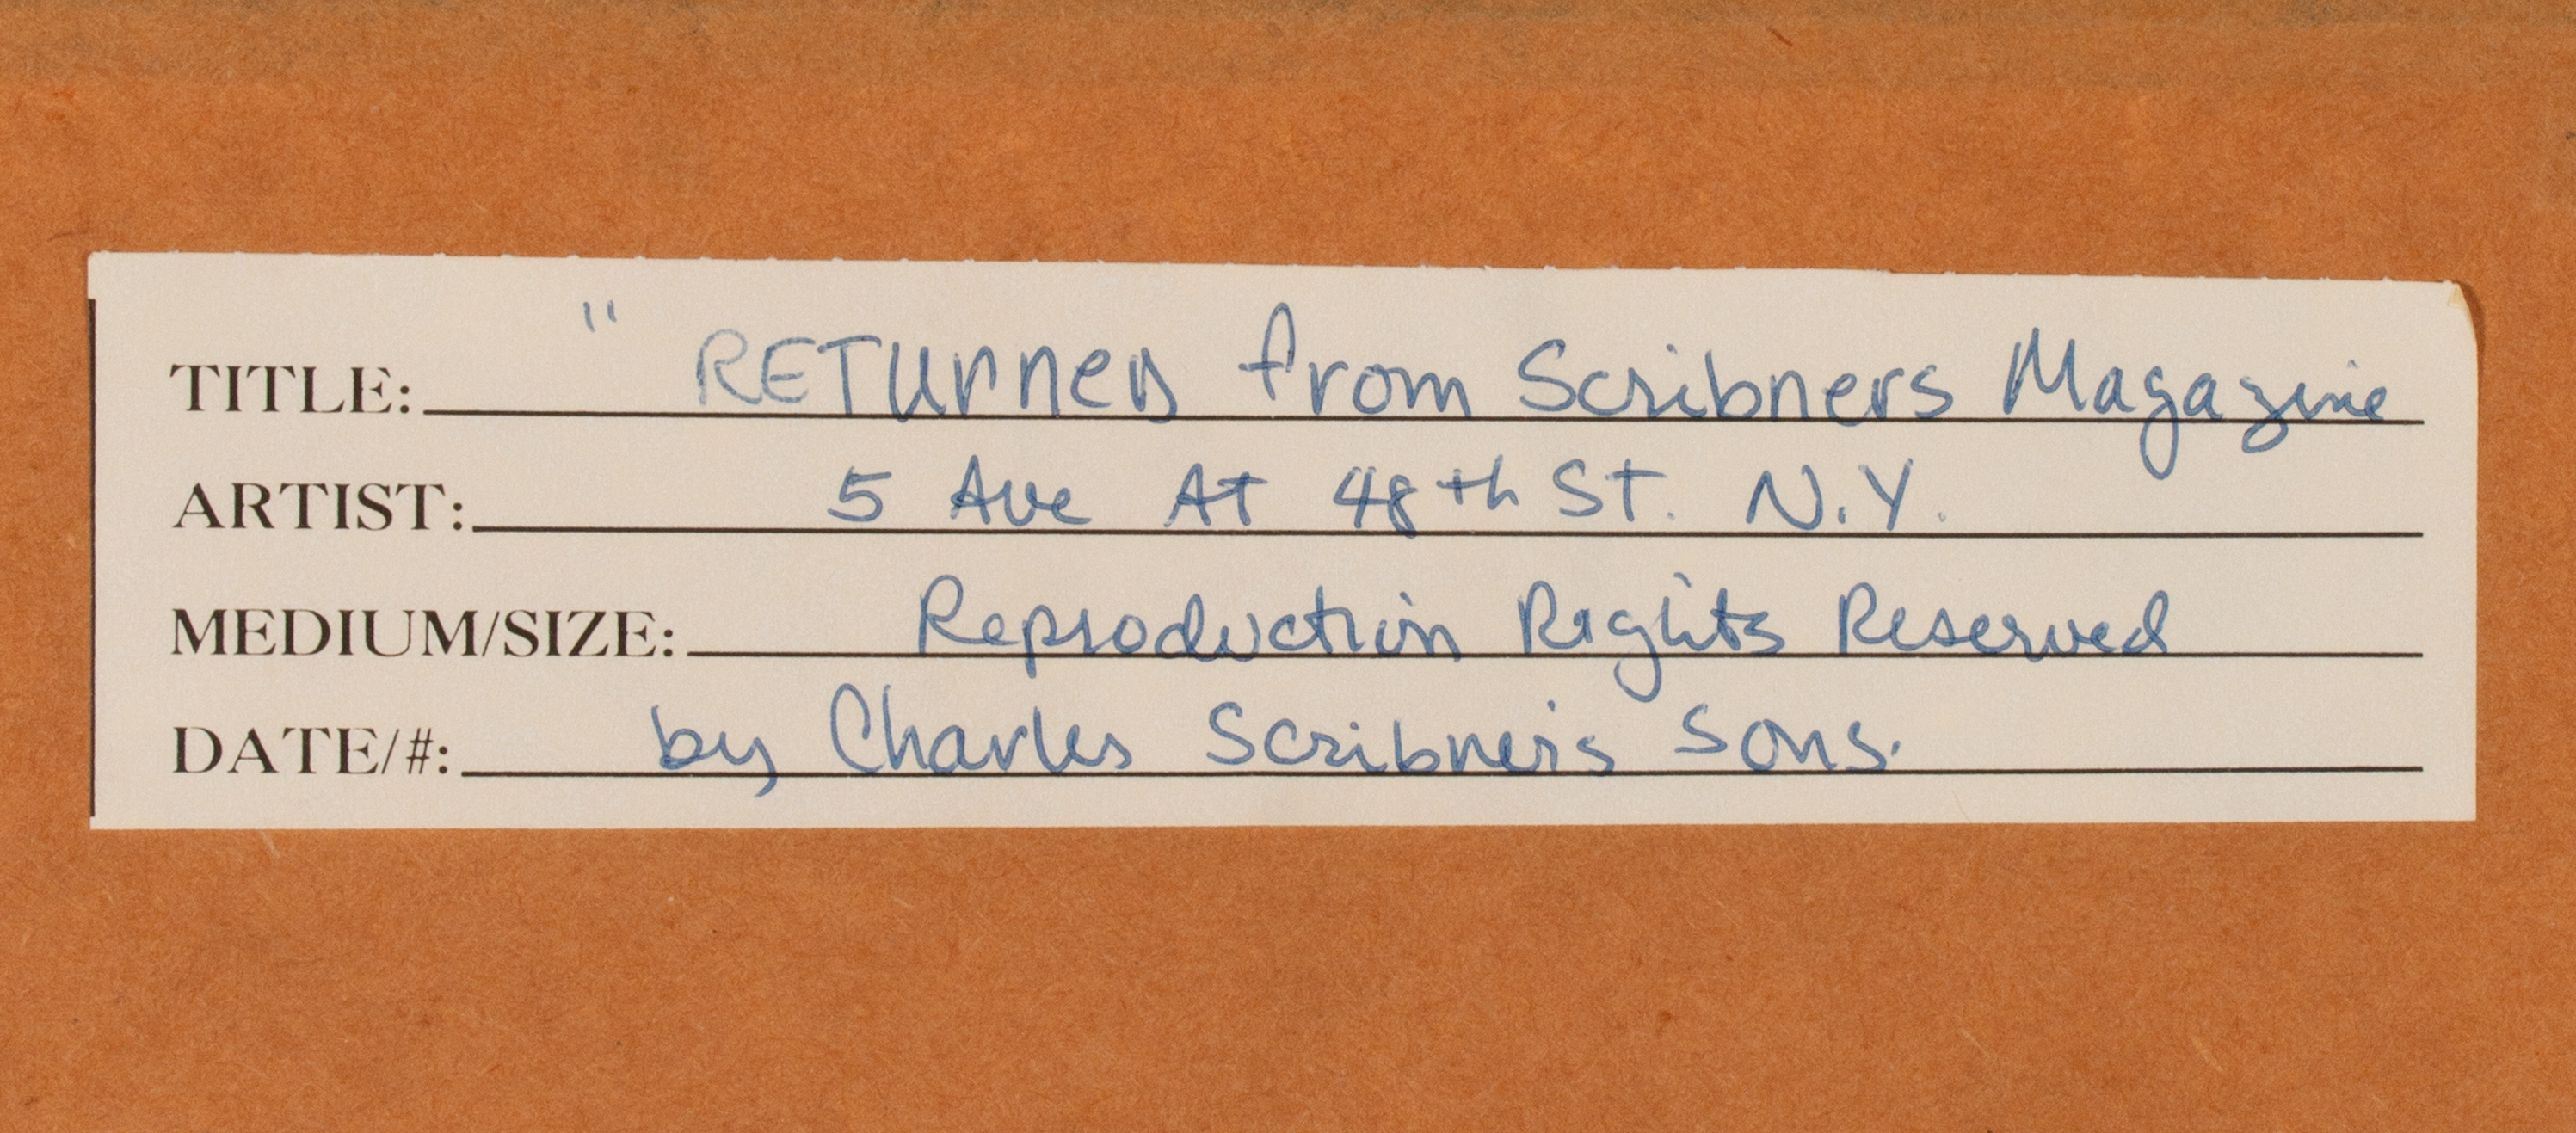 TITLE: " RETURNED from Scribners Magazine
ARTIST: 5 Ave At 48th St. N.Y.
MEDIUM/SIZE: Reproduction Rights Reserved
DATE/#: by Charles Scribner's Sons.